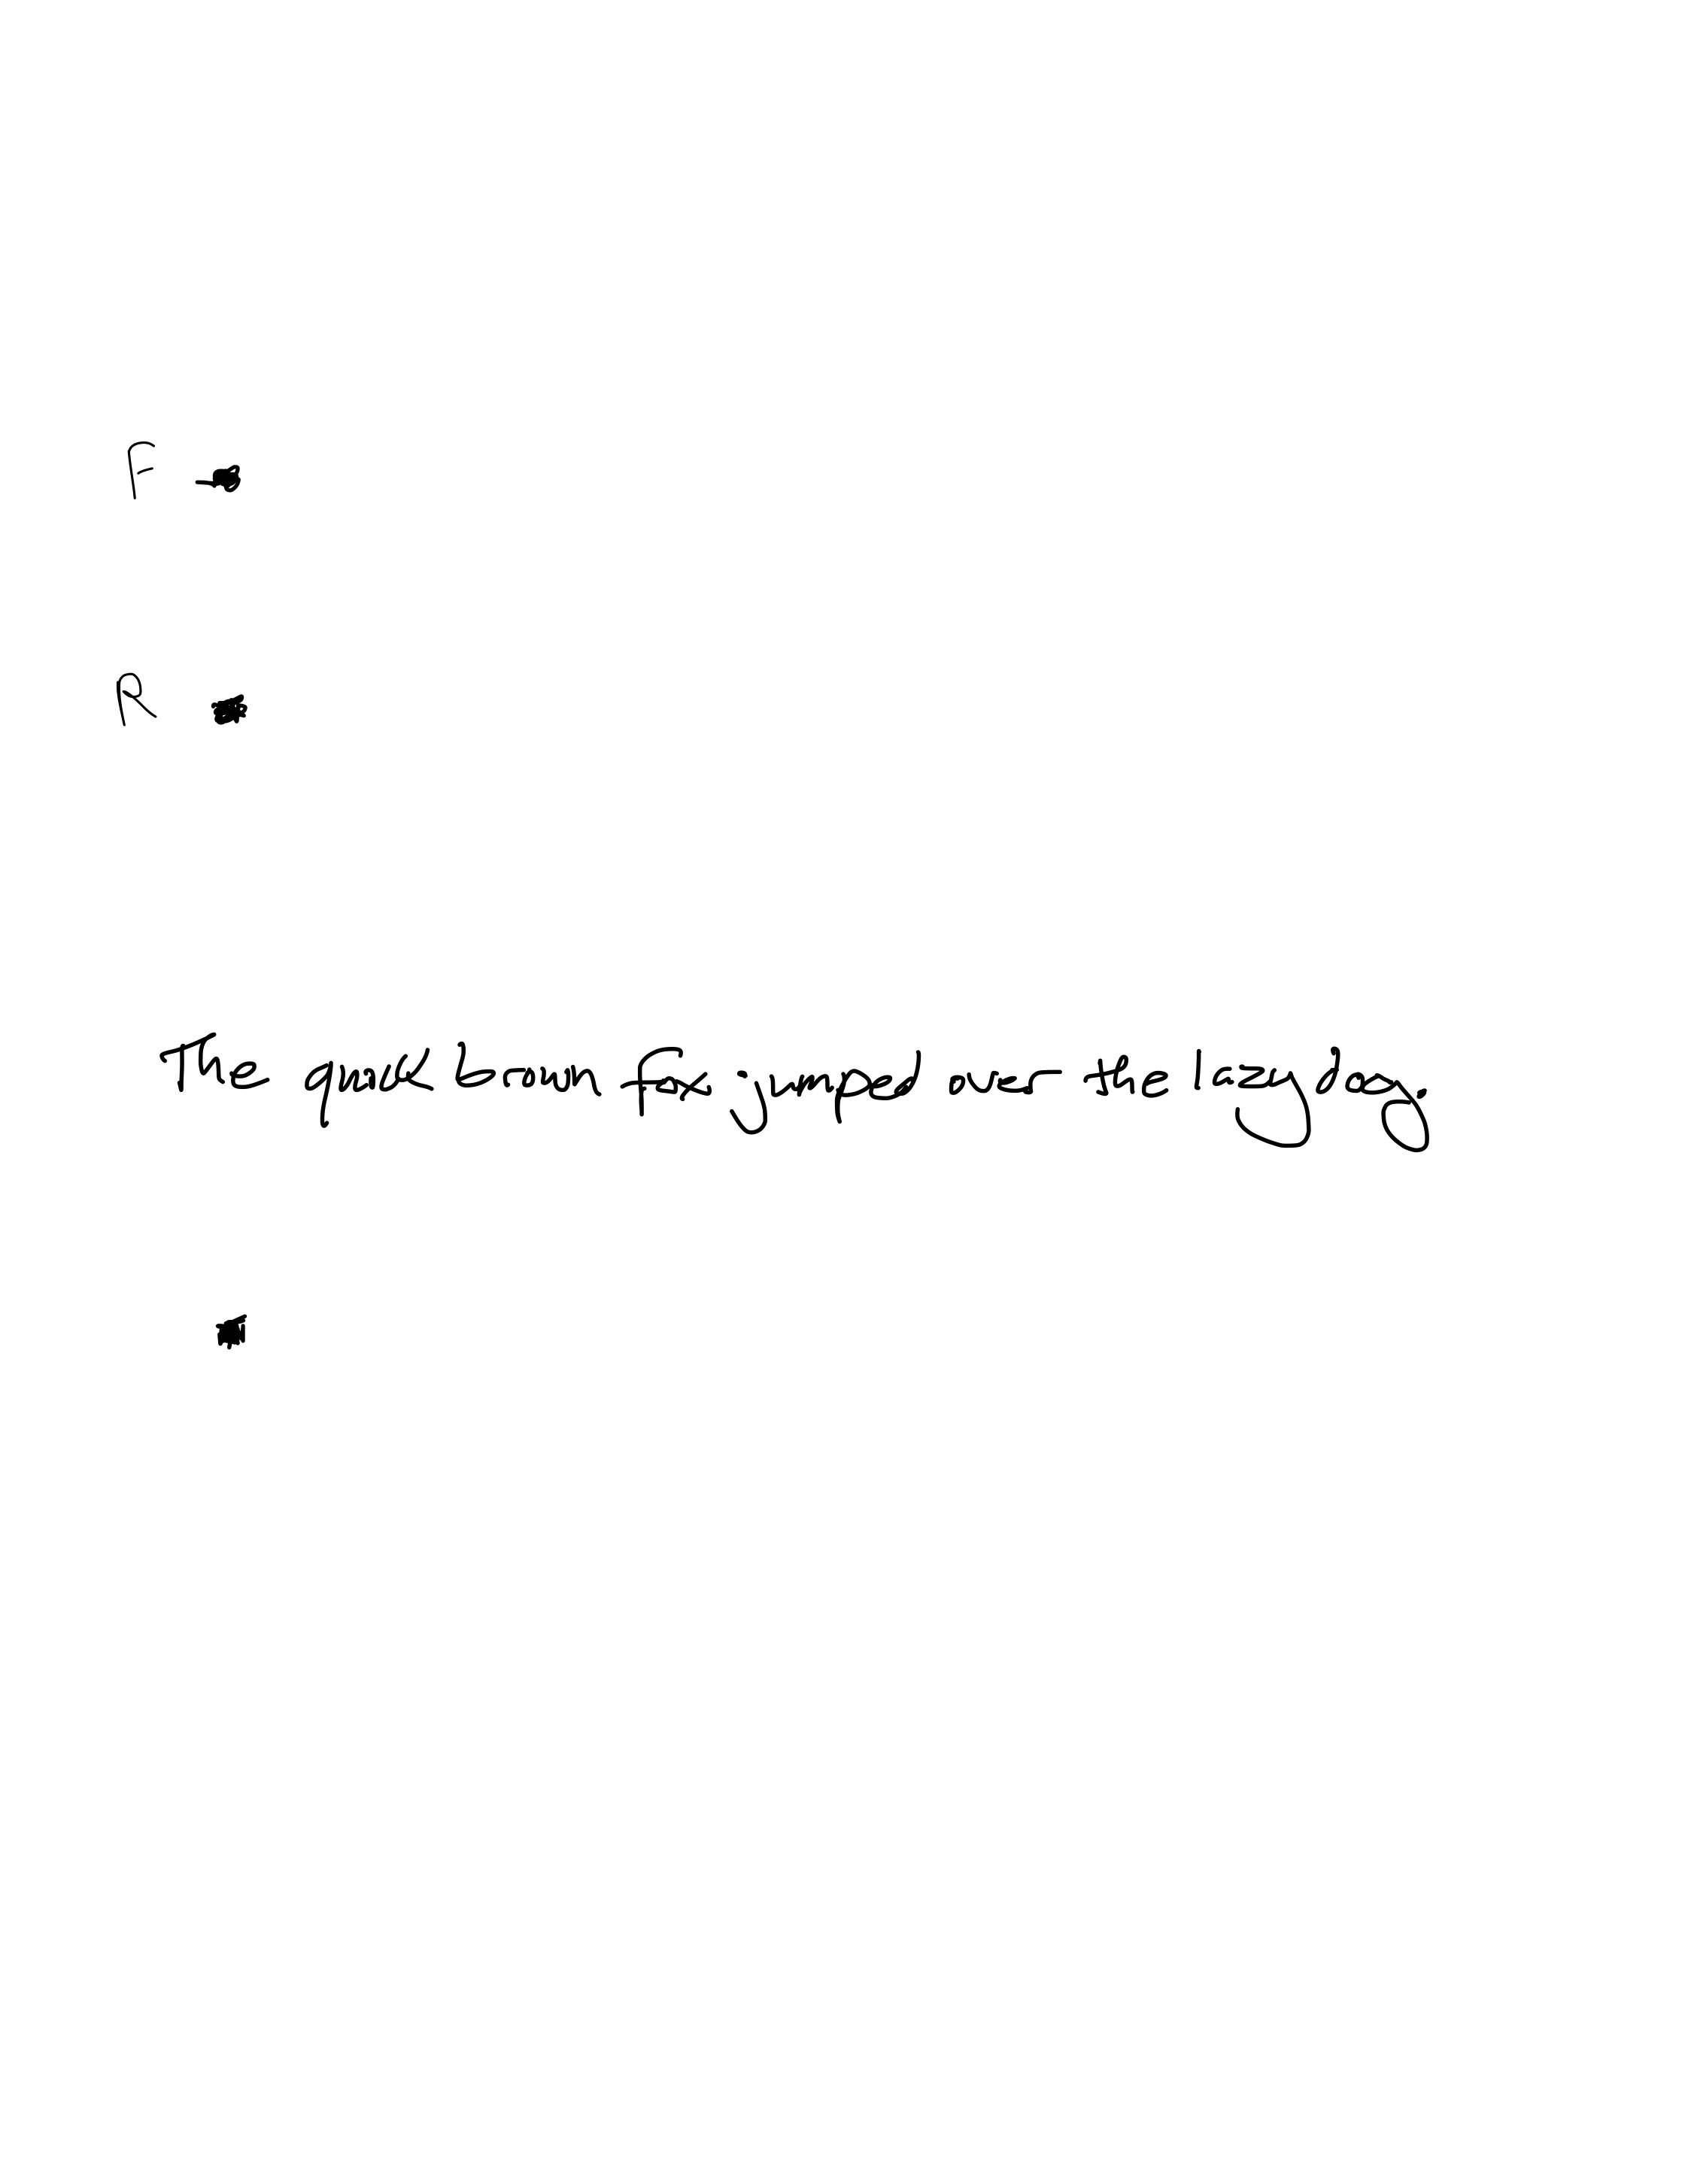 F
R
The quick brown fox jumped over the lazy dog.